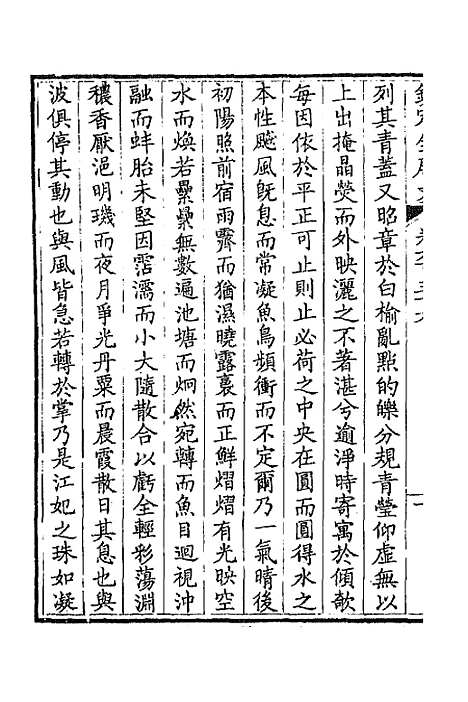 列其青蓋又昭章於白榆亂點的皪分規青瑩仰虛無以
上出掩晶熒而外映灑之不著湛兮逾淨時寄寓於傾欹
每因依於平正可止則止必荷之中央在圓而圓得水之
本性飈風旣息而常凝魚鳥頻衝而不定爾乃一氣晴後
初陽照前宿雨霽而猶濕曉露裛而正鮮熠熠有光映空
水而煥若纍纍無數遍池塘而炯然宛轉而魚目迴視沖
融而蚌胎未堅因霑濡而小大隨散合以虧全輕彩蕩淵
穠香厭浥明璣而夜月爭光丹粟而晨霞散日其息也與
波俱停其動也與風皆急若轉於掌乃是江妃之珠如凝